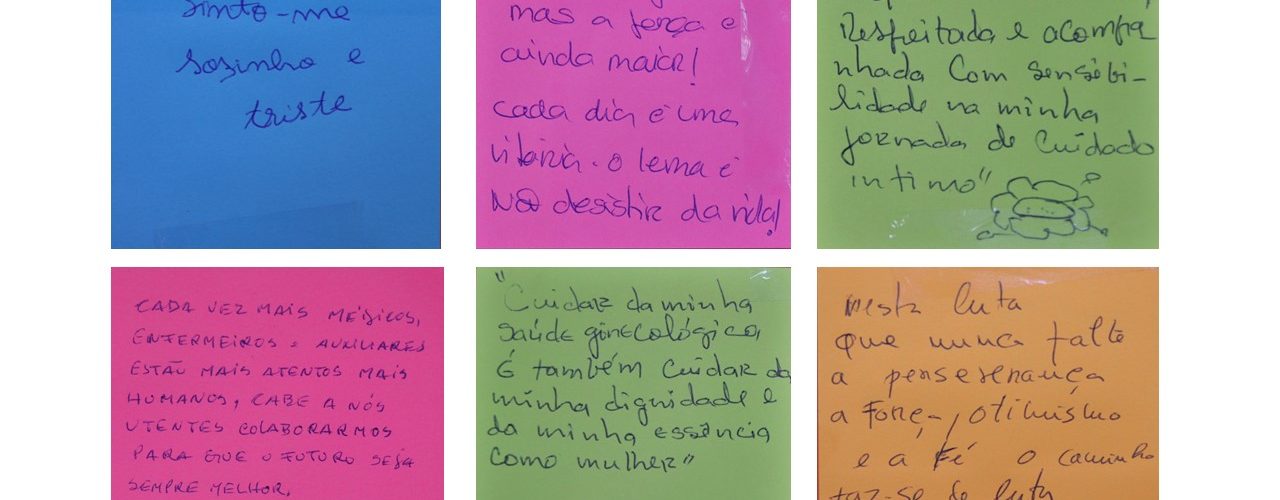 Sinto-me
sozinho e
triste
mas a força é
ainda maior!
cada dia é uma
vitória. o lema é
NÃO desistir da vida!
Respeitada e acompa
nhada com sensibi-
lidade na minha
jornada de cuidado
intimo"
CADA VEZ MAIS MÉDICOS,
ENFERMEIROS E AUXILIARES
ESTÃO MAIS ATENTOS MAIS
HUMANOS, CABE A NÓS
UTENTES COLABORARMOS
PARA QUE O FUTURO SEJA
SEMPRE MELHOR.
"Cuidar da minha
saúde ginecológica
É também cuidar da
minha dignidade e
da minha essência
como mulher"
nesta luta
que nunca falte
a perseverança
a força, otimismo
e a Fé o caminho
faz-se de luta